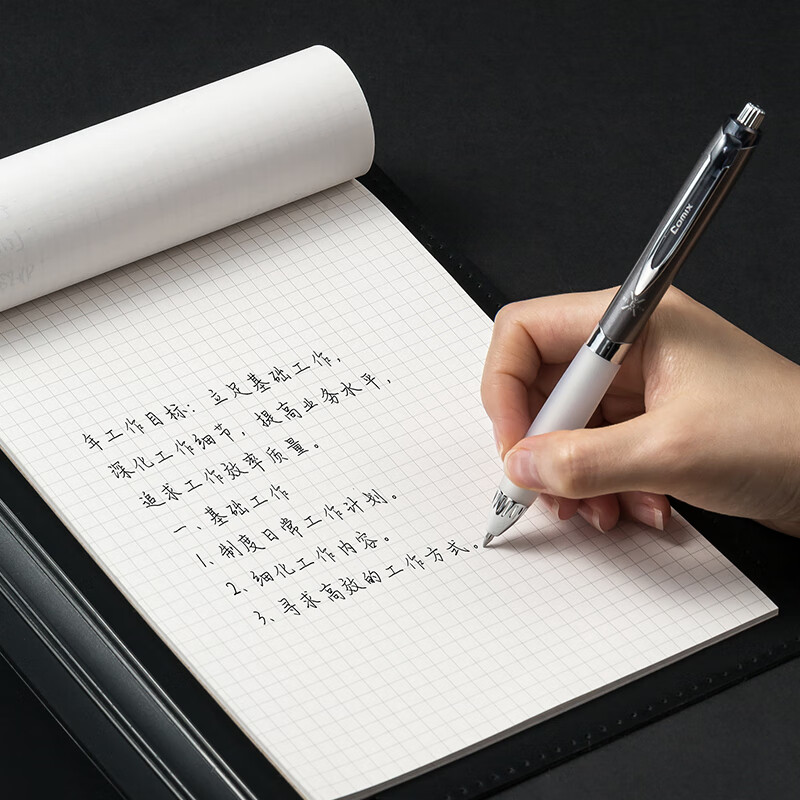 年工作目标：立足基础工作，
深化工作细节，提高业务水平，
追求工作效率质量。
一、基础工作
1. 制度日常工作计划。
2. 细化工作内容。
3. 寻求高效的工作方式。
Comix